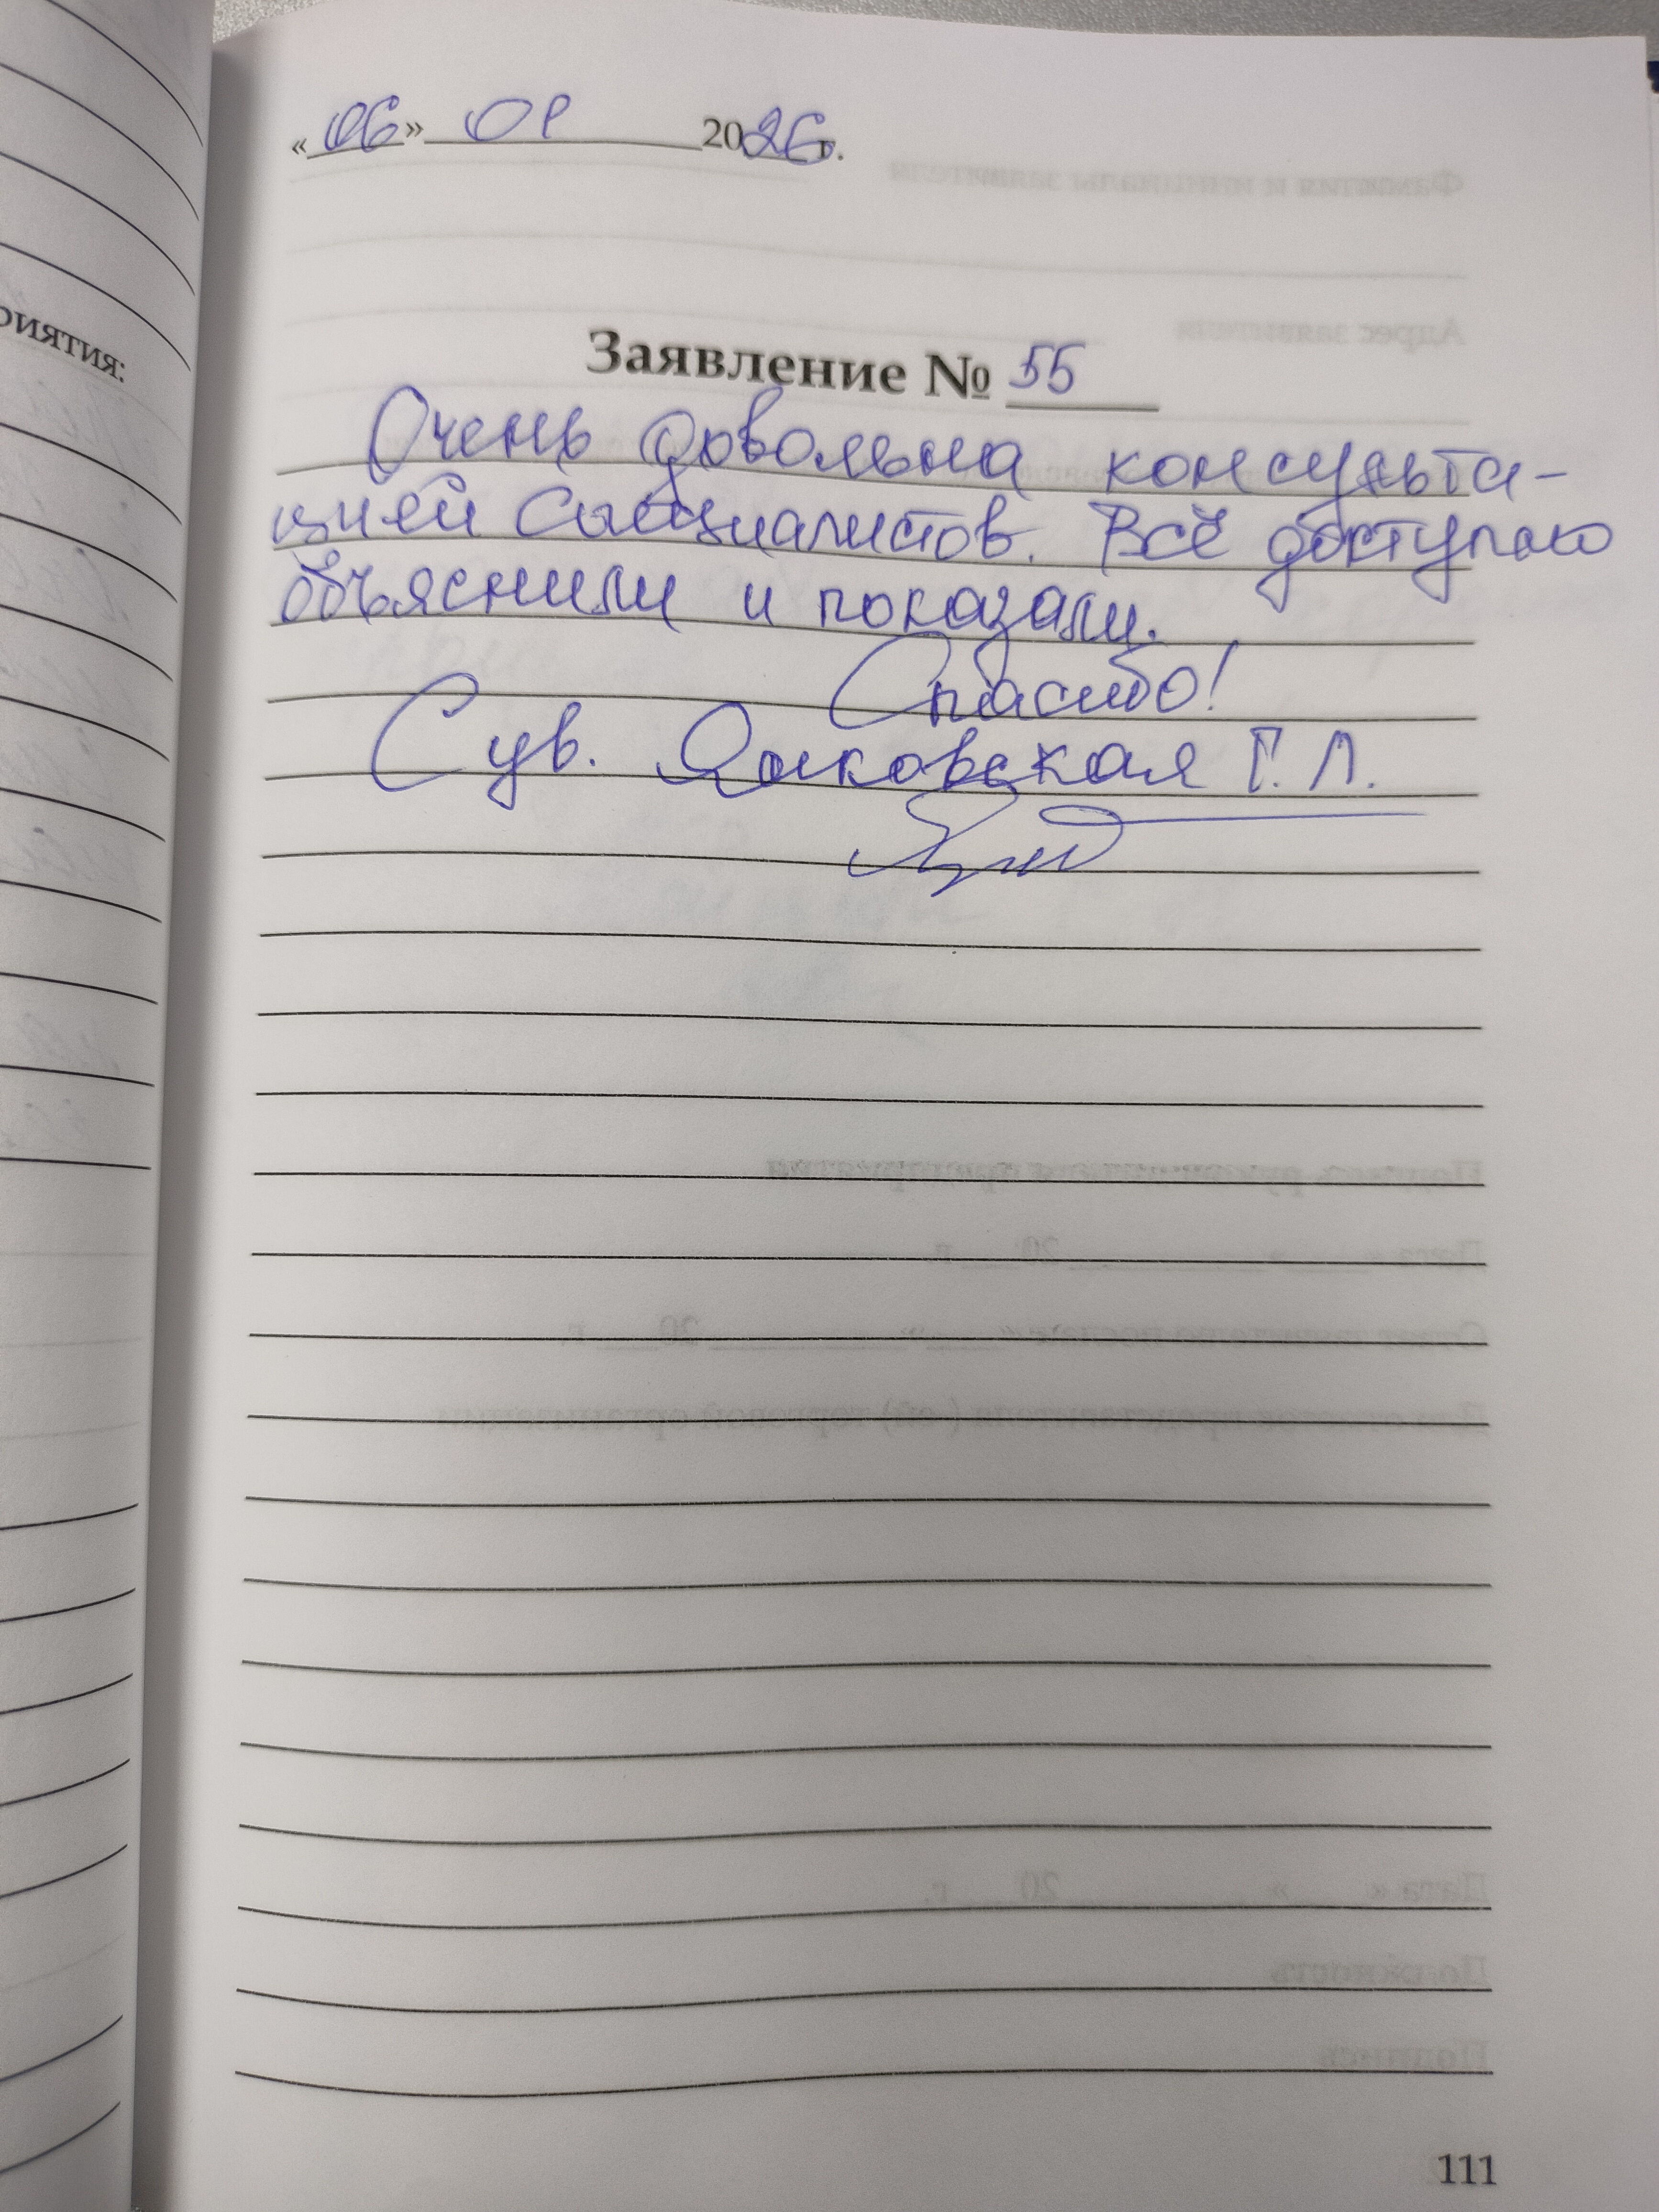 «06» 01 2026г.
Заявление № 55
Очень довольна консульта-
цией специалистов. Всё доступно
объяснили и показали.
Спасибо!
С ув. Г. Л.
риятия:
111